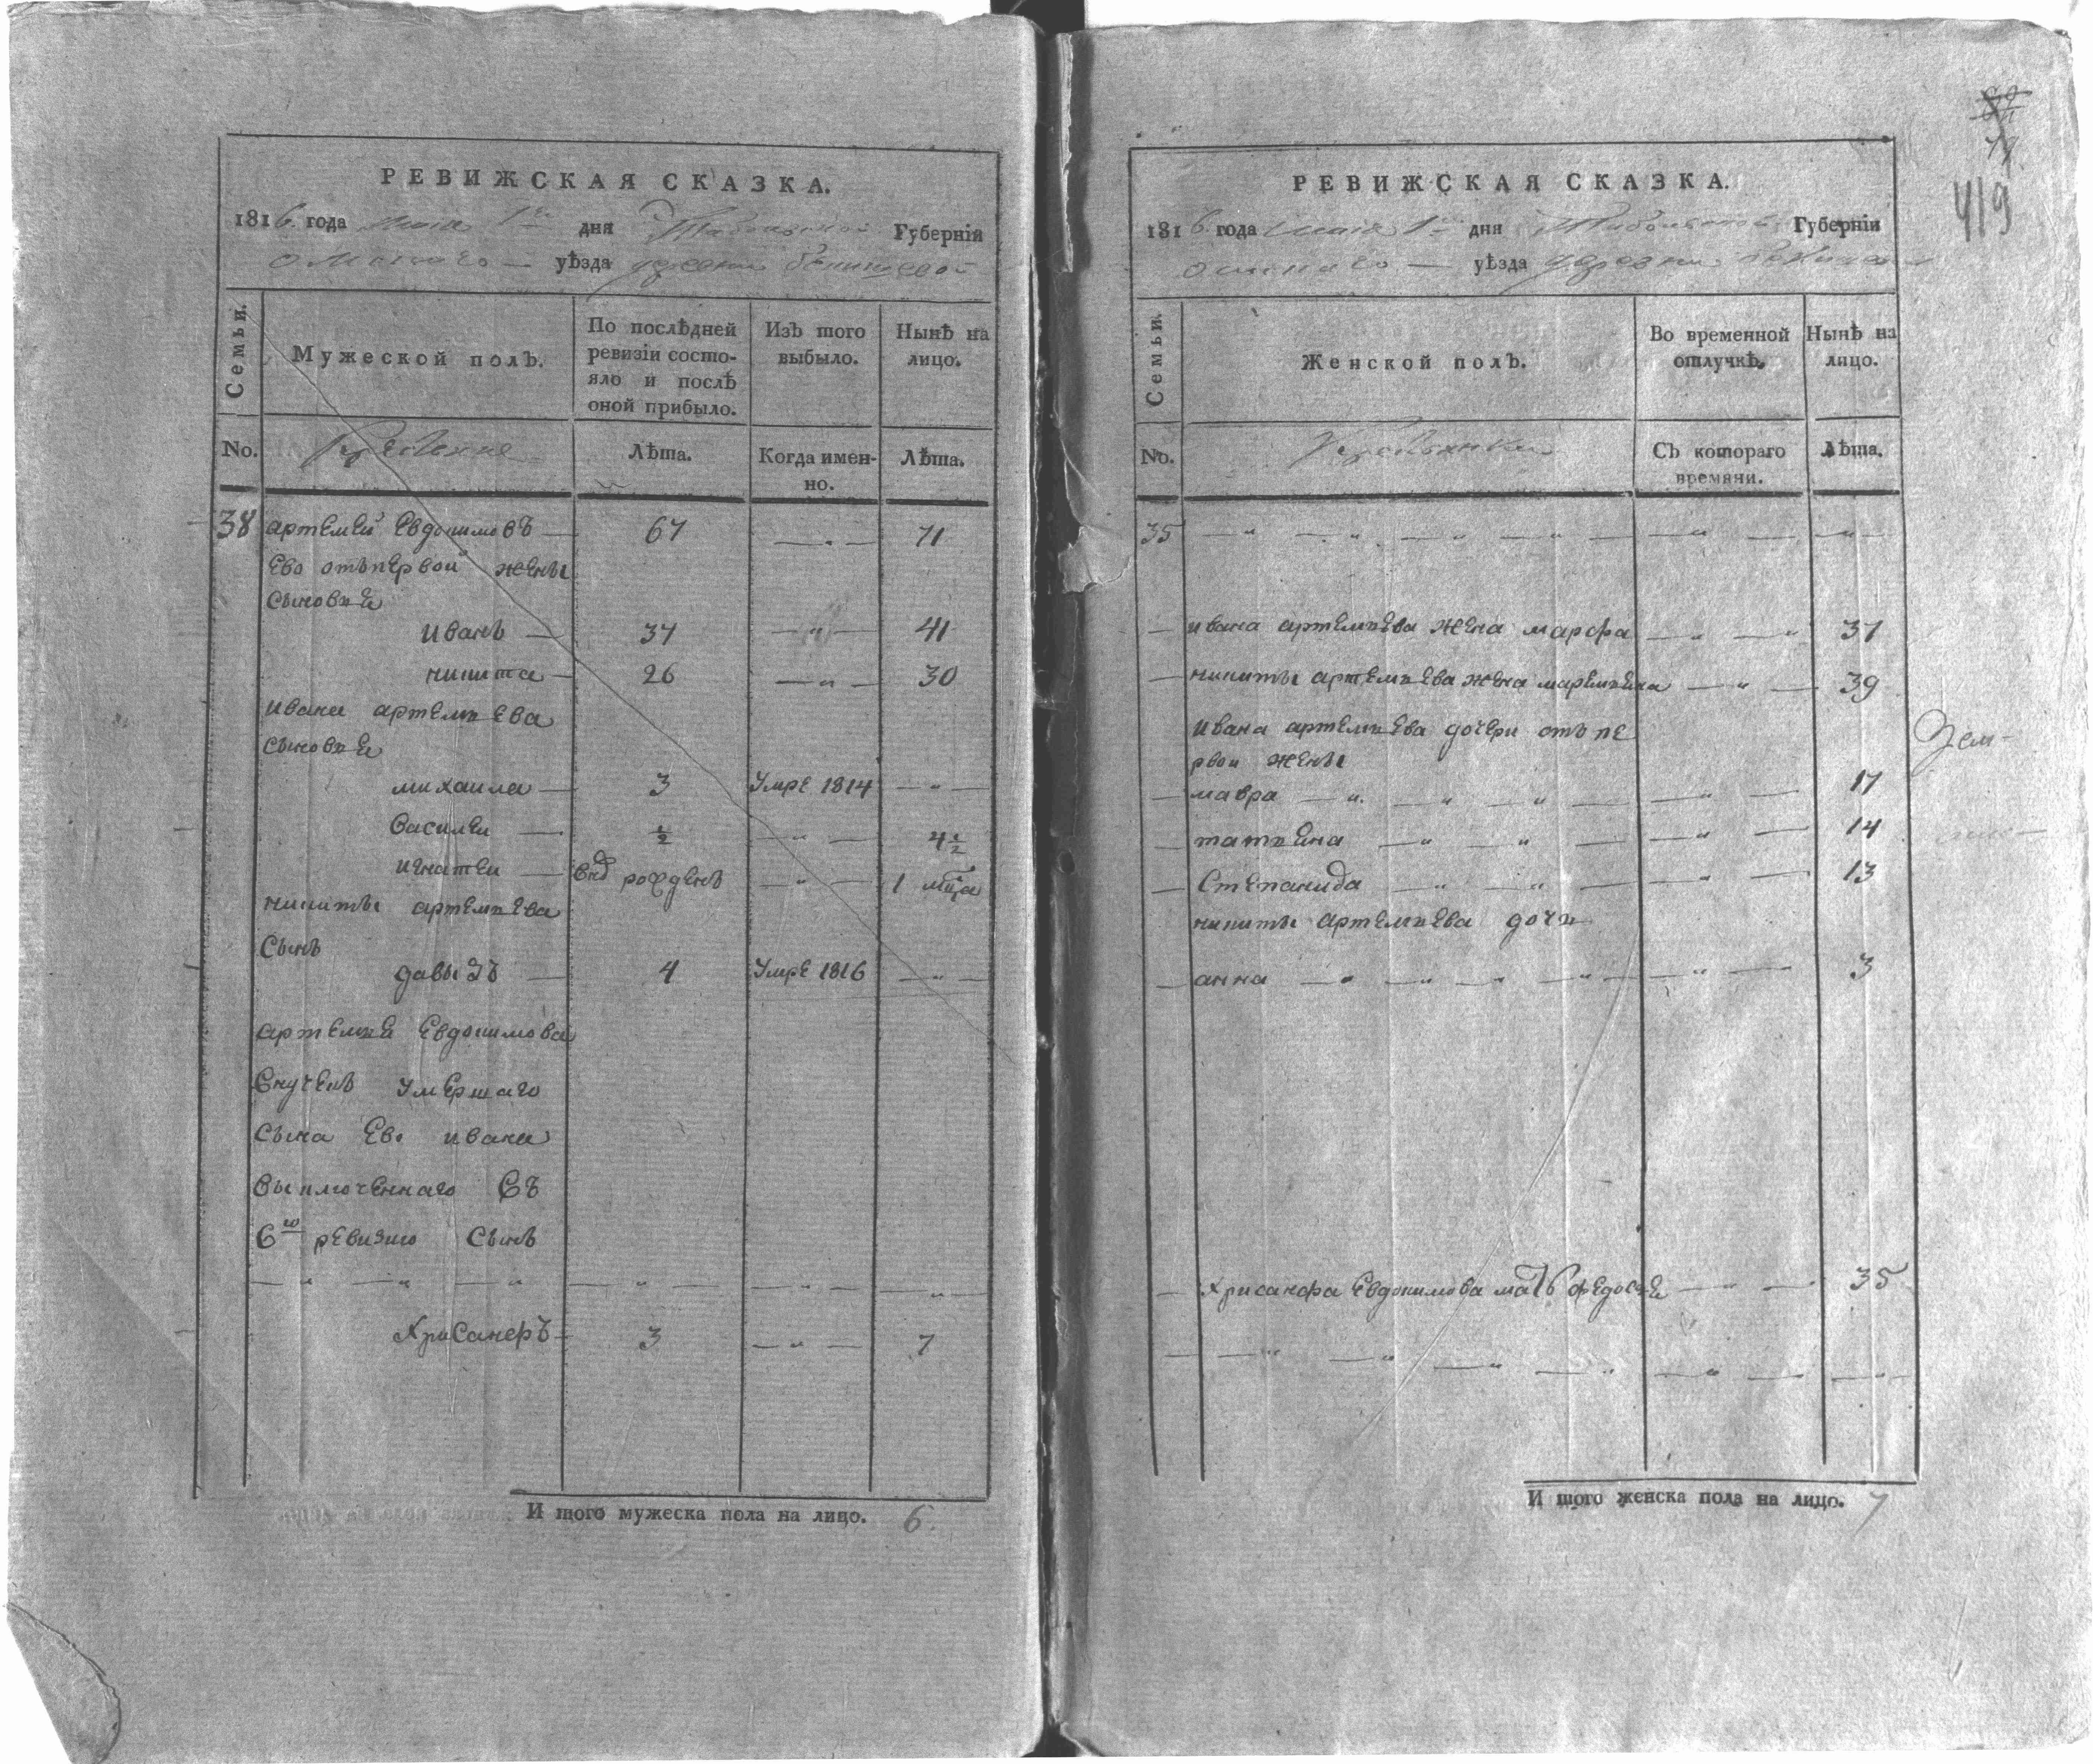 РЕВИЖСКАЯ СКАЗКА.
1816. года Маия 1го дня Тобольской Губернїи
Омскаго — уѣзда деревни
Семьи.
Мужеской полъ.
По послѣдней ревизїи состояло и послѣ оной прибыло.
Изъ того выбыло.
Нынѣ на лицо.
No.
Крестьяне
Лѣта.
Когда именно.
Лѣта.
38 артемей Евдокимовъ — 67 — „ — 71
Ево отъпервои жены
сыновья
иванъ — 37 — „ — 41
никита — 26 — „ — 30
ивана артемьева
сыновья
михаила — 3 Умре 1814 — „ —
василеи — ½ — „ — 4½
игнатеи — рожденъ — „ — 1 мца
никиты артемьева
сынъ
давыдъ — 4 Умре 1816 — „ —
артемья Евдокимова
внучекъ умершаго
сына Ево ивана
выключеннаго съ
6ю ревизию сынъ
— „ — „ — „ — „ — „ — „ —
Хрисанфъ — 3 — „ — 7
И того мужеска пола на лицо. 6.
419
РЕВИЖСКАЯ СКАЗКА.
1816. года Маия 1го дня Тобольской Губернїи
Омскаго — уѣзда деревни
Семьи.
Женской полъ.
Во временной отлучкѣ.
Нынѣ на лицо.
No.
Крестьянки
Съ котораго времяни.
Лѣта.
35 — „ — „ — „ — „ — „ — „ —
— ивана артемьева жена марфа — „ — „ 37
— никиты артемьева жена маремьяна — „ — 39
ивана артемьева дочери отъ пе
рвои жены
Зем-
— мавра — „ — „ — „ — „ — 17
— татьяна — „ — „ — „ — 14
— Степанида — „ — „ — „ — 13
никиты артемьева дочь
— анна — „ — „ — „ — „ — „ — 3
— Хрисанфа Евдокимова мать федосья — „ — 35
— „ — „ — „ — „ — „ — „ —
И того женска пола на лицо. 7